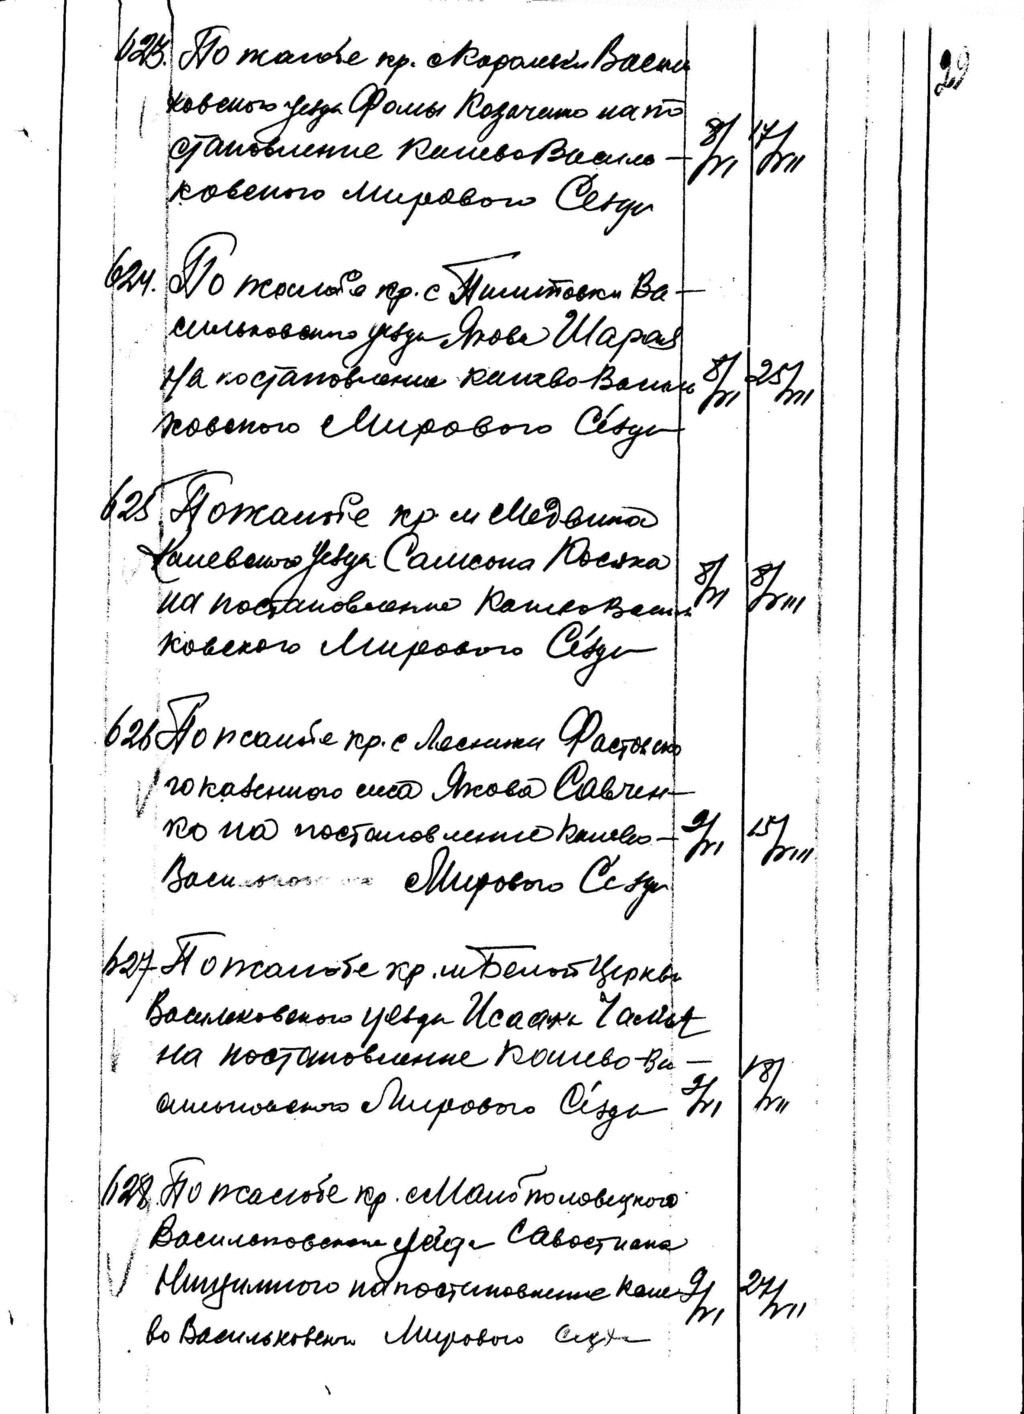 29
623. По жалобе кр. с Корольки Василь
ковского уезда Фомы Козаченко на по
становление Каневовасиль— 8/VI 17/VII
ковского Мирового Сезда
624. По жалобе кр. с Пилиповки Ва—
сильковского уезда Якова Шарая
на постановление Канево Василь 8/VI 25/VII
ковского Мирового Сезда
625 По жалобе кр м Медвина
Каневского уезда Самсона Косяка
на постановление Канево Василь 8/VI 8/VIII
ковского Мирового Сезда
626 По жалобе кр. с Лесники Фастовско
го казенного Якова Савчен—
ко на постановление Канево— 9/VI 15/VIII
Васильковского Мирового Сезда
627 По жалобе кр. м Белой Церкви
Васильковского уезда Исаака
на постановление Канево-Ва— 9/VI 18/VII
сильковского Мирового Сезда
628 По жалобе кр. с Малополовецкого
Васильковского уезда Савостиана
на постановление Кане 9/VI 27/VII
во Васильковского Мирового Сезда